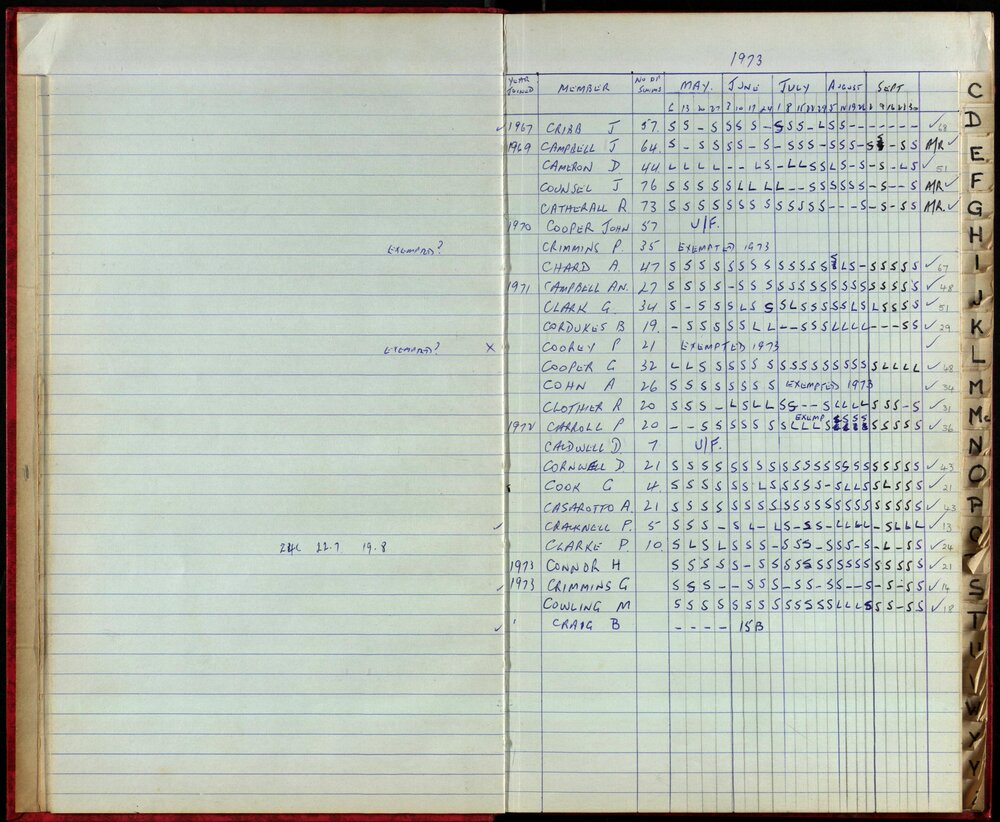 EXEMPTED?
EXEMPTED? X
22.7 19.8
1973
YEAR JOINED MEMBER NO OF SWIMS MAY. JUNE JULY AUGUST SEPT
6 13 20 27 3 10 17 24 1 8 15 22 29 5 12 19 26 2 9 16 23 30
✓ 1967 CRIBB J 57 S S - S S S S - S S S - L S S - - - - - - - ✓ 68
1969 CAMPBELL J 64 A/R ✓
CAMERON D 44 L L L L - - L S - L L S S L S - S - S - L S ✓ 51
COUNSEL J 76 S S S S S L L L L - - S S S S S S - S - - S A/R ✓
CATHERALL R 73 S S S S S S S S S S S S S - - - S - S - S S A/R ✓
1970 COOPER JOHN 57 U/F.
CRIMMINS P. 35 EXEMPTED 1973
CHARD A. 47 ✓ 67
1971 CAMPBELL AN. 27 S S S S S S S S S S S S S S S S S S S S S S ✓ 48
CLARK G 34 ✓ 51
CORDUKES B 19. - S S S S S L L - - S S S L L L L - - - S S ✓ 29
COOLEY P 21 EXEMPTED 1973 ✓
COOPER G 32 L L S S S S S S S S S S S S S S S S L L L L ✓ 48
COHN A 26 S S S S S S S S EXEMPTED 1973 ✓ 34
CLOTHIER R 20 S S S - L S L L S S - - S L L L L S S S - S ✓ 31
1972 CARROLL P 20 EXEMP ✓ 36
CALDWELL D. 7 U/F.
CORNWELL D 21 S S S S S S S S S S S S S S S S S S S S S S ✓ 43
COOK G 4. S S S S S S L S S S S S - S L L S S L S S S ✓ 21
CASAROTTO A. 21 S S S S S S S S S S S S S S S S S S S S S S ✓ 43
✓ CRACKNELL P. 5 S S S - S L - L S - S S - L L L L - S L L L ✓ 13
CLARKE P. 10 S L S L S S S - S S S - S S S - S - L - S S ✓ 24
1973 CONNOR H S S S S S - S S S S S S S S S S S S S S S S ✓ 21
✓ 1973 CRIMMINS G S S S - - S S S - S S - S S - - S - S - S S ✓ 14
COWLING M S S S S S S S S S S S S S L L L S S S - S S ✓ 18
✓ CRAIG B - - - - 15B
C
D
E
F
G
H
I
J
K
L
M
Mc
N
O
P
S
T
U
W
Y